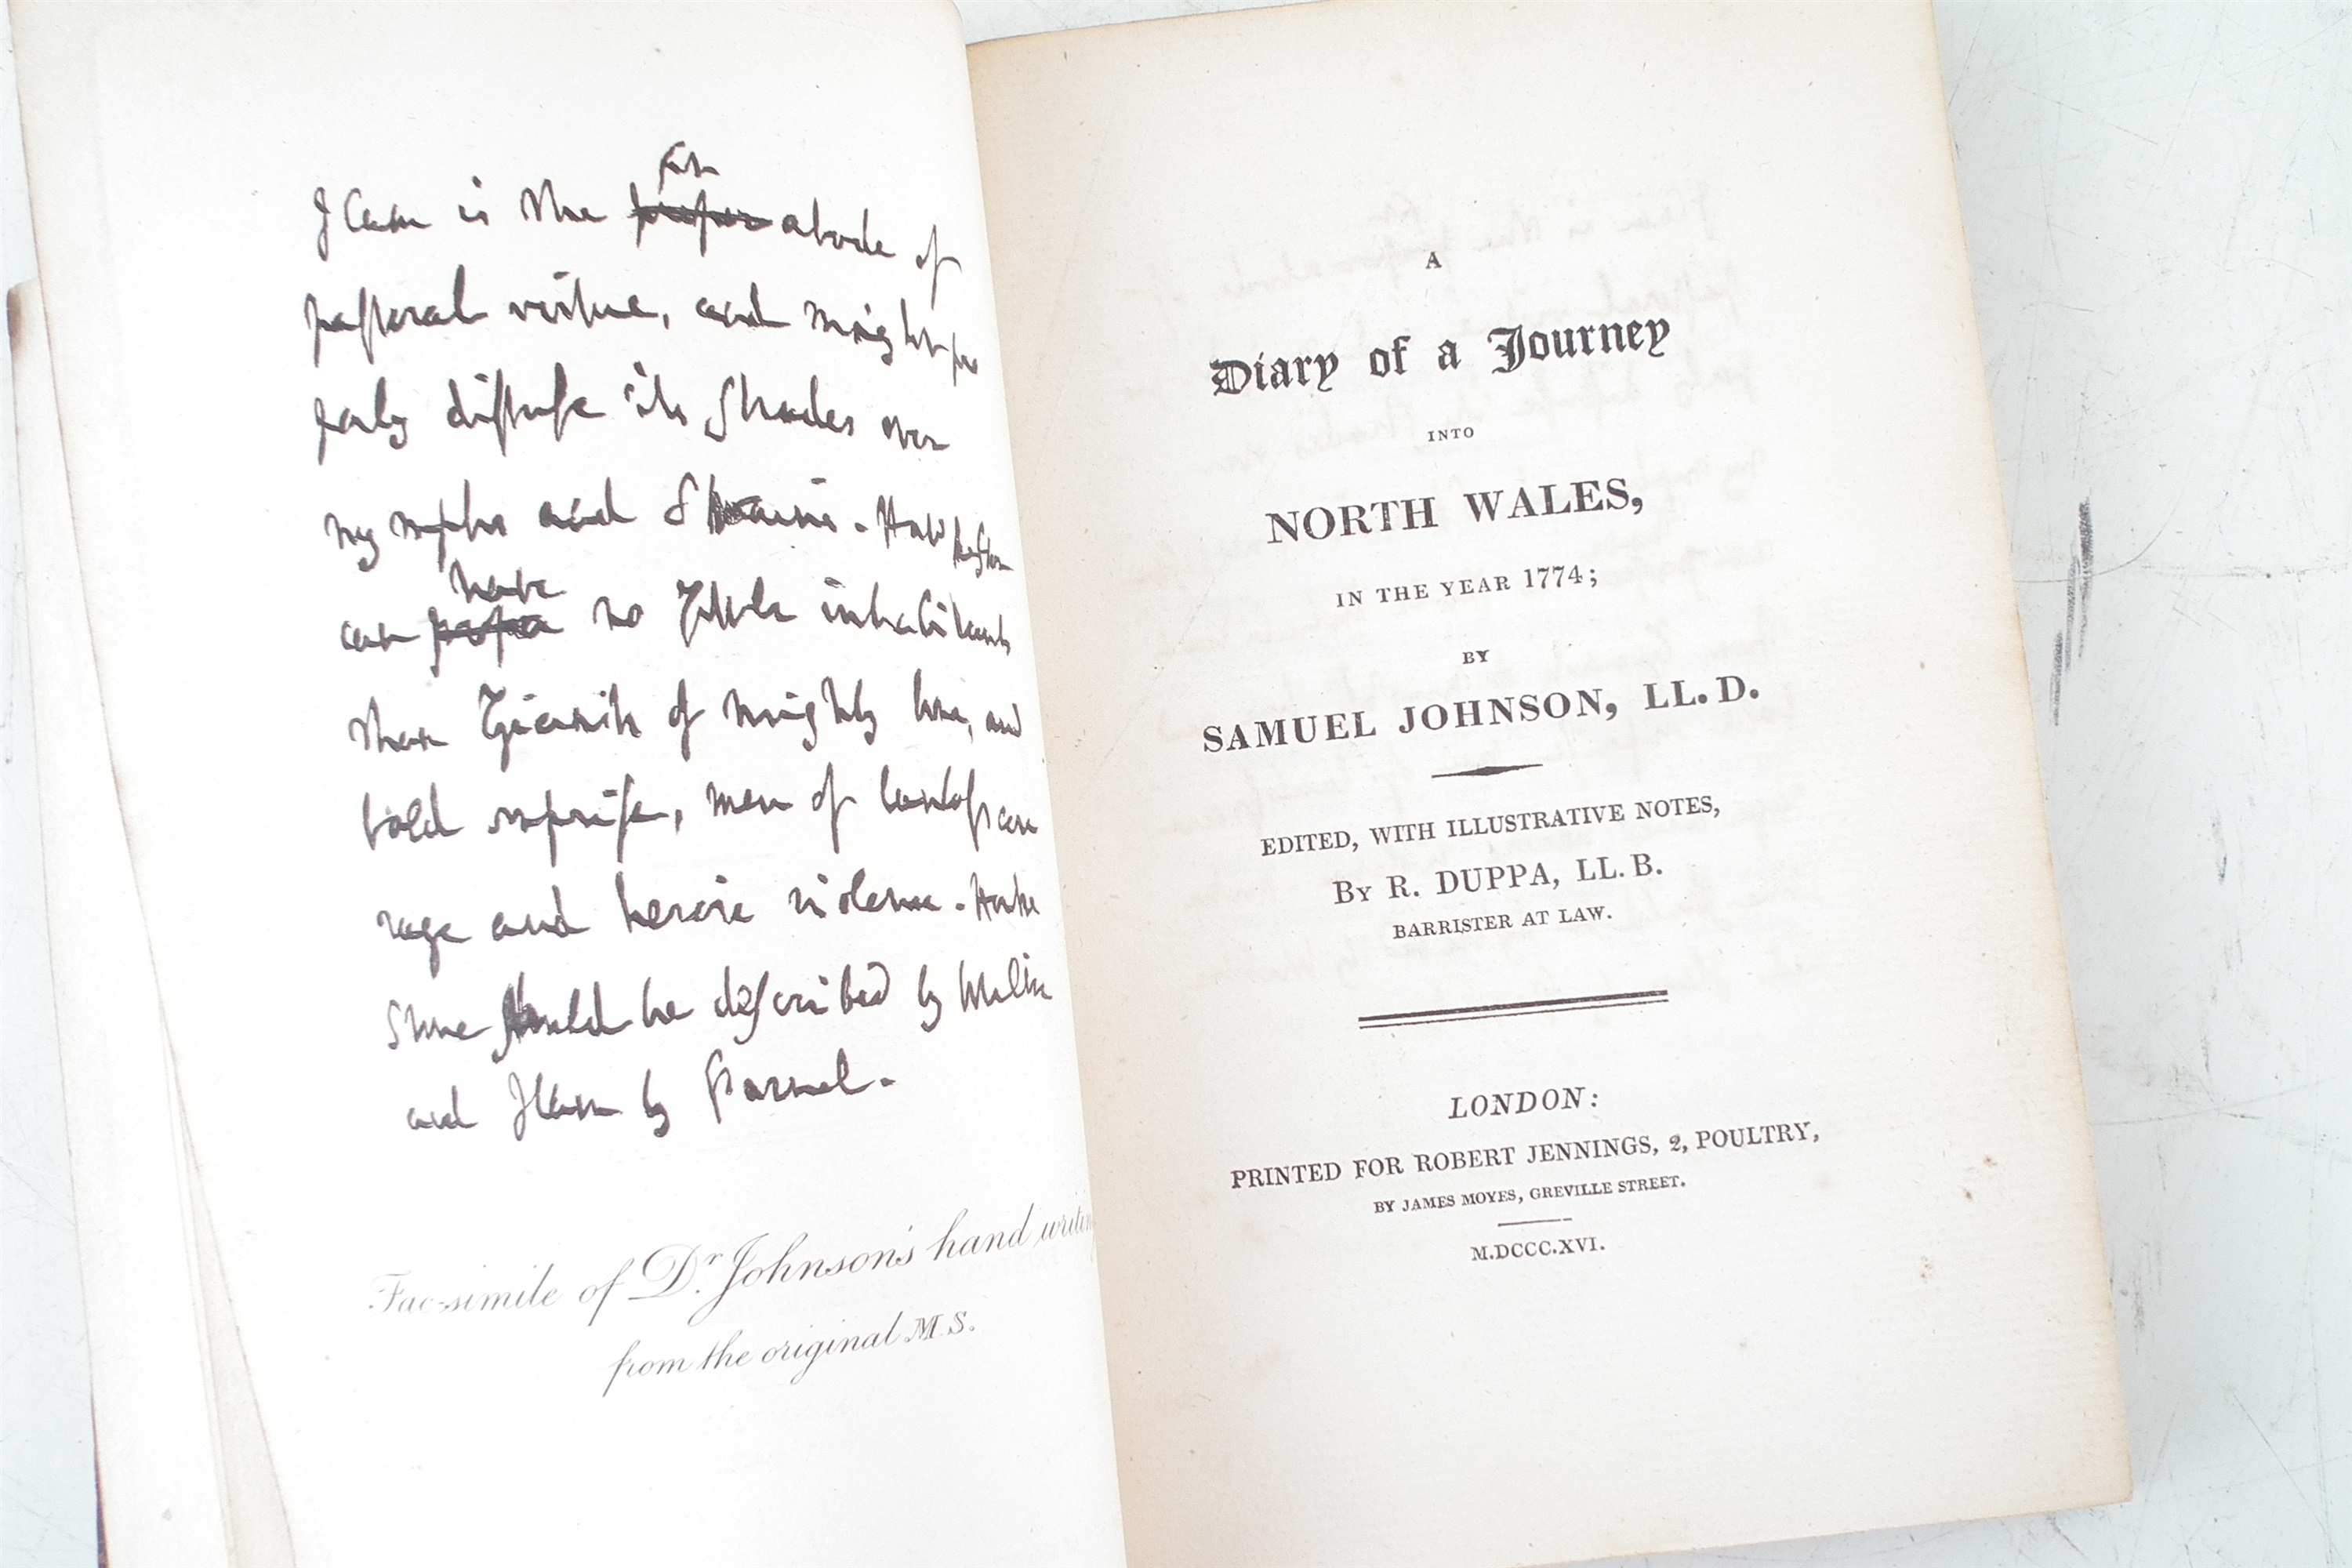 fit
Ilam is the abode of
pastoral virtue, and might pro
perly diffuse its Shades over
nymphs and Swains. Hawkeston
have
can no fitter inhabitants
than Giants of mighty bone, and
bold emprise, men of lawless cou
rage and heroic violence. Hawke
stone should be described by Milton
and Ilam by Parnel.
Fac-simile of Dr. Johnson's hand writing
from the original M.S.
A
Diary of a Journey
INTO
NORTH WALES,
IN THE YEAR 1774;
BY
SAMUEL JOHNSON, LL.D.
EDITED, WITH ILLUSTRATIVE NOTES,
BY R. DUPPA, LL.B.
BARRISTER AT LAW.
LONDON:
PRINTED FOR ROBERT JENNINGS, 2, POULTRY,
BY JAMES MOYES, GREVILLE STREET.
M.DCCC.XVI.